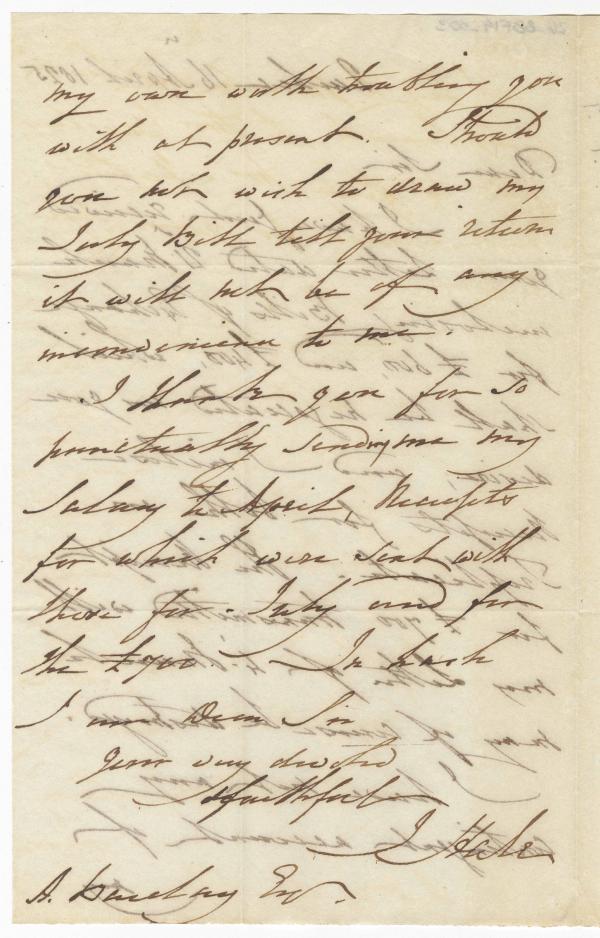 my own worth troubling you
with at present. Should
you not wish to draw my
July Bill till your return
it will not be of any
inconvenience to me.
I thank you for so
punctually sending me my
Salary to April, Receipts
for which were sent with
those for July and for
the £700. In haste
I am Dear Sir
your very devoted
& faithful
J Hale
A. Barclay Esqr.